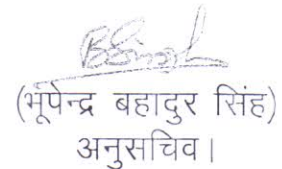 (भूपेन्द्र बहादुर सिंह)
अनुसचिव।